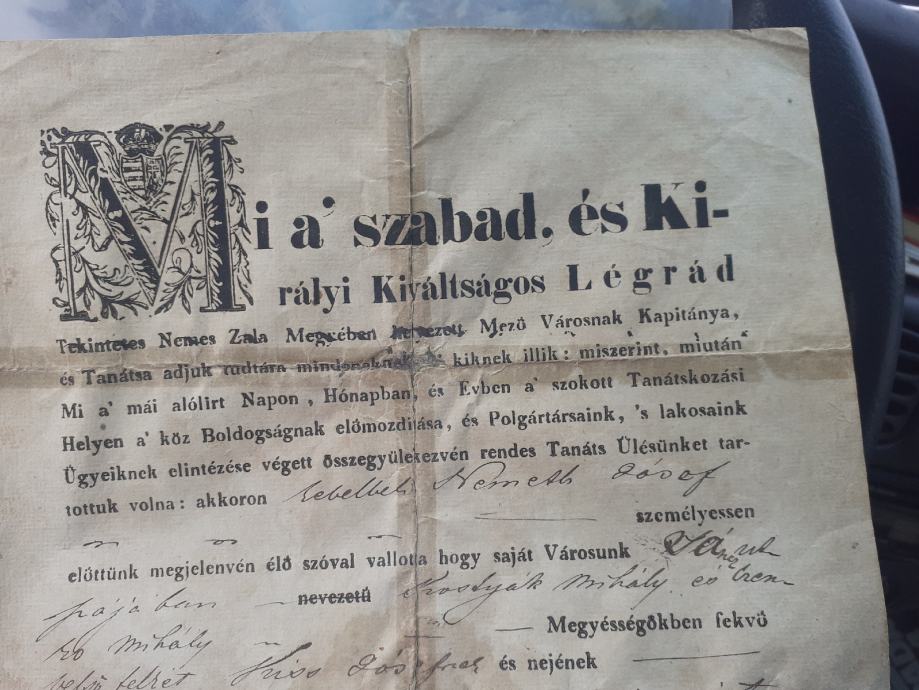 Mi a' szabad, és Ki-
rályi Kiváltságos Légrád
Tekintetes Nemes Zala Megyében nevezett Mezö Városnak Kapitánya,
és Tanátsa adjuk tudtára mindenaknak a' kiknek illik: miszerint, miután
Mi a' mái alólirt Napon, Hónapban, és Evben a' szokott Tanátskozási
Helyen a' köz Boldogságnak előmozditása, és Polgártársaink, 's lakosaink
Ügyeiknek elintézése végett összegyülekezvén rendes Tanáts Ülésünket tar-
tottuk volna: akkoron Nemeth Jósef
személyessen
előttünk megjelenvén élő szóval vallotta hogy saját Városunk
nevezetü Mihály és
Mihály Megyésségökben fekvö
Kiss és nejének